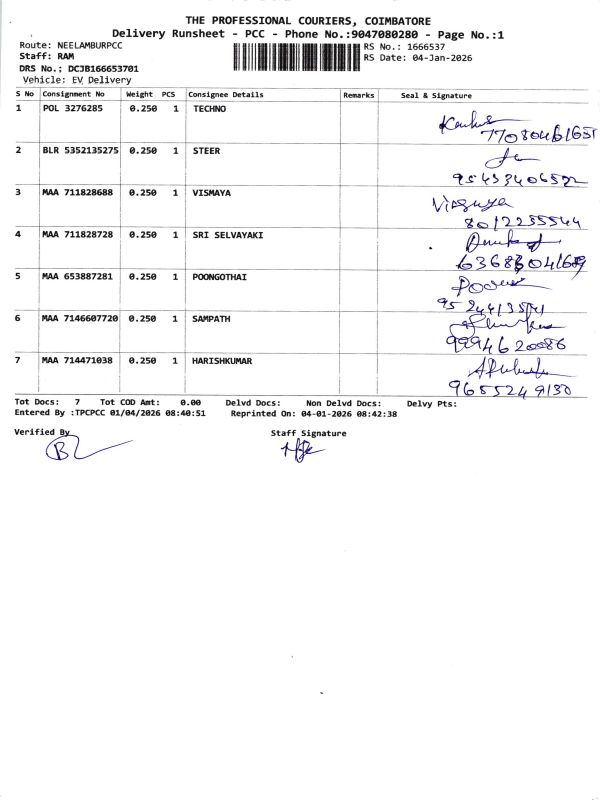 THE PROFESSIONAL COURIERS, COIMBATORE
Delivery Runsheet - PCC - Phone No.:9047080280 - Page No.:1
Route: NEELAMBURPCC
RS No.: 1666537
Staff: RAM
RS Date: 04-Jan-2026
DRS No.; DCJB166653701
Vehicle: EV Delivery
S No Consignment No Weight PCS Consignee Details Remarks Seal & Signature
1 POL 3276285 0.250 1 TECHNO
2 BLR 5352135275 0.250 1 STEER
3 MAA 711828688 0.250 1 VISMAYA
Vismaya
8012255544
4 MAA 711828728 0.250 1 SRI SELVAYAKI
5 MAA 653887281 0.250 1 POONGOTHAI
6 MAA 7146607720 0.250 1 SAMPATH
9994620086
7 MAA 714471038 0.250 1 HARISHKUMAR
9655249130
Tot Docs: 7 Tot COD Amt: 0.00 Delvd Docs: Non Delvd Docs: Delvy Pts:
Entered By :TPCPCC 01/04/2026 08:40:51 Reprinted On: 04-01-2026 08:42:38
Verified By Staff Signature